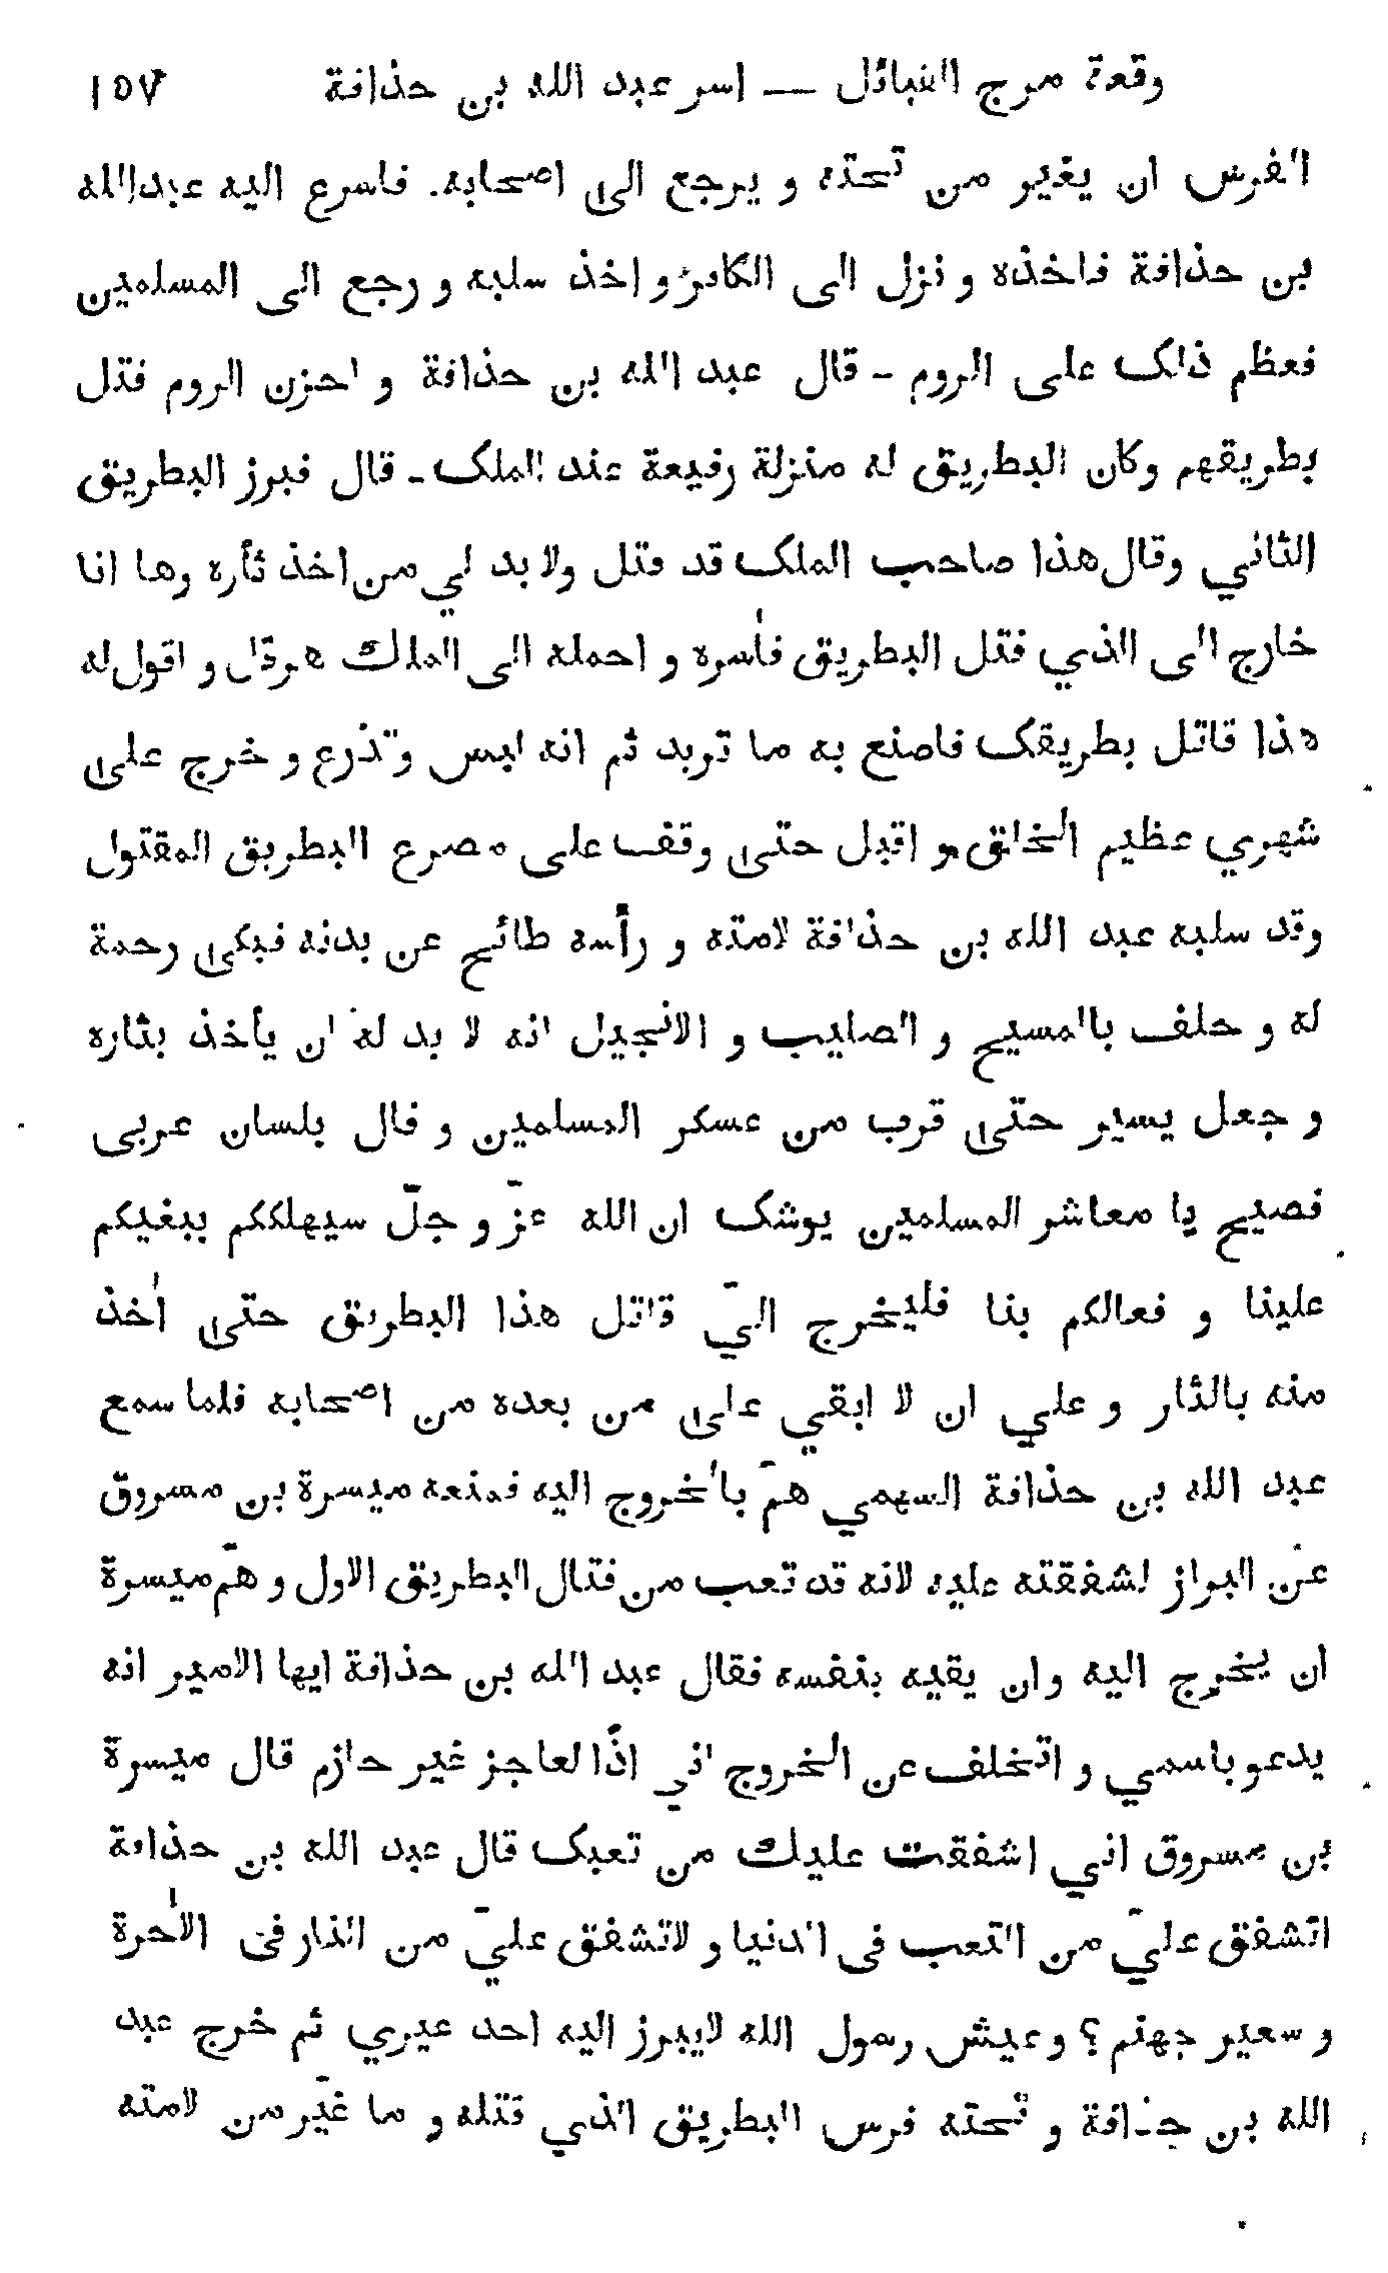 وقعة مرج القبائل — اسر عبد الله بن حذافة ١٥٧
الفرس ان يغير من تحته و يرجع الى اصحابه. فاسرع اليه عبدالله
بن حذافة فاخذه و نزل الى الكافر و اخذ سلبه و رجع الى المسلمين
فعظم ذلك على الروم - قال عبد الله بن حذافة و احزن الروم قتل
بطريقهم وكان البطريق له منزلة رفيعة عند الملك - قال فبرز البطريق
الثاني وقال هذا صاحب الملك قد قتل ولا بد لي من اخذ ثأره وها انا
خارج الى الذي قتل البطريق فأسره و احمله الى الملك هرقل و اقول له
هذا قاتل بطريقك فاصنع به ما تريد ثم انه لبس وتذرع و خرج على
شهري عظيم الخلق و اقبل حتى وقف على مصرع البطريق المقتول
وقد سلبه عبد الله بن حذافة لامته و رأسه طائح عن بدنه فبكى رحمة
له و حلف بالمسيح و الصليب و الانجيل انه لا بد له ان يأخذ بثاره
و جعل يسير حتى قرب من عسكر المسلمين و قال بلسان عربى
فصيح يا معاشر المسلمين يوشك ان الله عزّ و جلّ سيهلككم ببغيكم
علينا و فعالكم بنا فليخرج اليّ قاتل هذا البطريق حتى أخذ
منه بالثار و علي ان لا ابقي على من بعده من اصحابه فلما سمع
عبد الله بن حذافة السهمي همّ بالخروج اليه فمنعه ميسرة بن مسروق
عن البراز لشفقته عليه لانه قد تعب من قتال البطريق الاول و همّ ميسرة
ان يخرج اليه وان يقيه بنفسه فقال عبد الله بن حذافة ايها الامير انه
يدعو باسمي و اتخلف عن الخروج اني اذًا لعاجز غير حازم قال ميسرة
بن مسروق اني اشفقت عليك من تعبك قال عبد الله بن حذافة
اتشفق عليّ من التعب فى الدنيا و لاتشفق عليّ من النار فى الأخرة
و سعير جهنم؟ وعيش رسول الله لايبرز اليه احد غيري ثم خرج عبد
الله بن حذافة و تحته فرس البطريق الذي قتله و ما غيّر من لامته